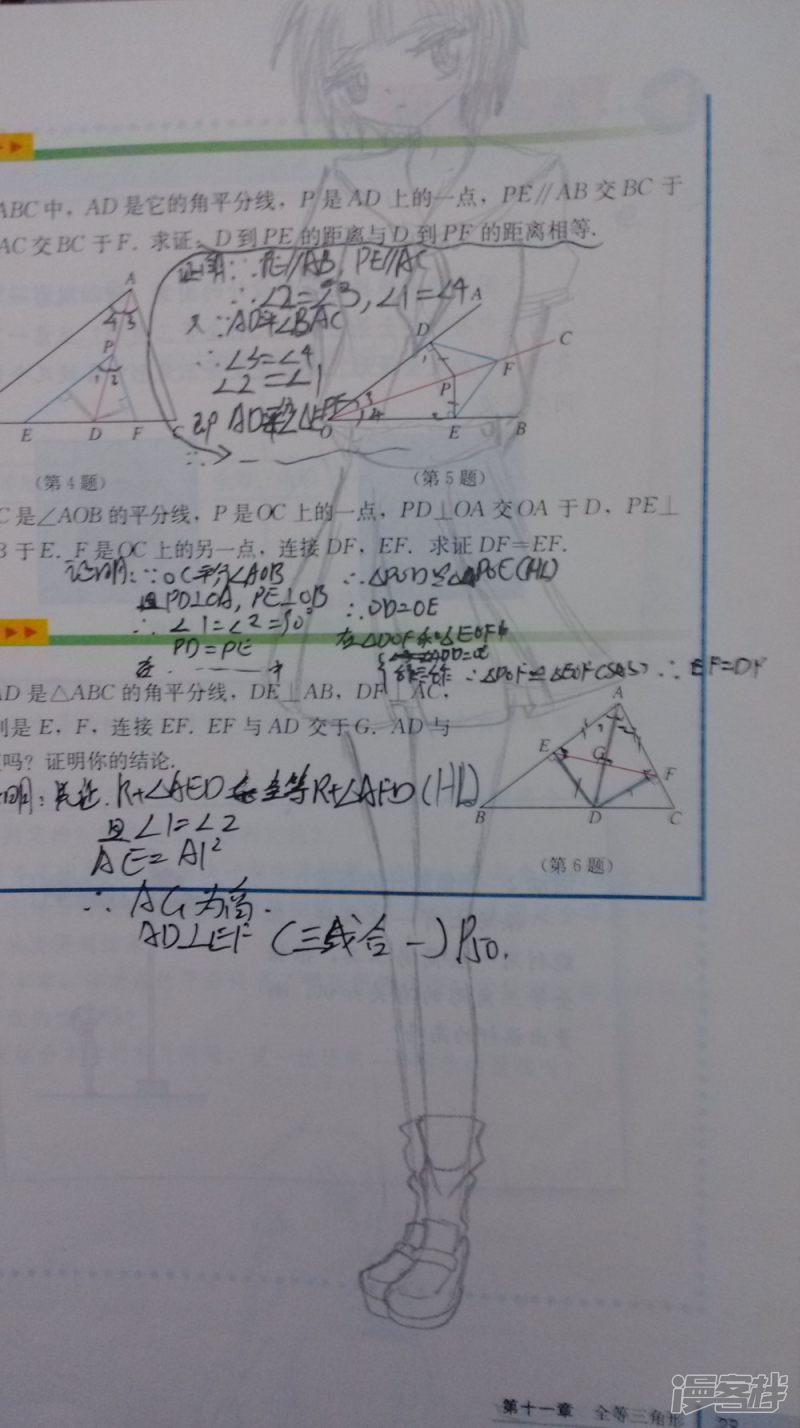 ABC中，AD是它的角平分线，P是AD上的一点，PE∥AB交BC于
AC交BC于F. 求证：D到PE的距离与D到PF的距离相等.
证明：∵PE∥AB，PE∥AC
∴∠2=∠3，∠1=∠4
又∵AD平∠BAC
∴∠3=∠4
∠2=∠1
即AD平分∠EPF
∴
A
4 3
P
1 2
E D F C
A
D
C
F
1
P
3
4
2
O E B
(第4题)
(第5题)
C是∠AOB的平分线，P是OC上的一点，PD⊥OA交OA于D，PE⊥
B于E. F是OC上的另一点，连接DF，EF. 求证DF=EF.
证明：∵OC平分∠AOB
且PD⊥OA，PE⊥OB
∴∠1=∠2=90°
PD=PE
在 中
∴△POD≌△POE(HL)
∴OD=OE
在△DOF和△EOF中
∴△DOF≌△EOF(SAS) ∴EF=DF
AD是△ABC的角平分线，DE⊥AB，DF⊥AC.
别是E，F，连接EF. EF与AD交于G. AD与
吗？证明你的结论.
Rt∠AED 全等Rt∠AFD(HL)
且∠1=∠2
AE=AF
∴AG为高.
AD⊥EF (三线合一) P50.
A
1 2
E
G
F
B D C
(第6题)
第十一章 全等三角形
漫客栈